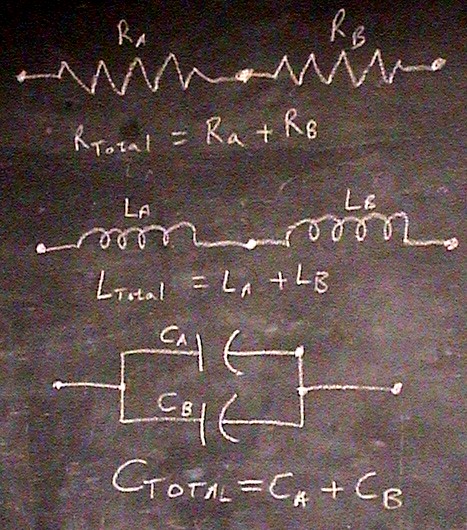 RA RB
RTotal = Ra + RB
LA LB
LTotal = LA + LB
CA
CB
CTOTAL = CA + CB